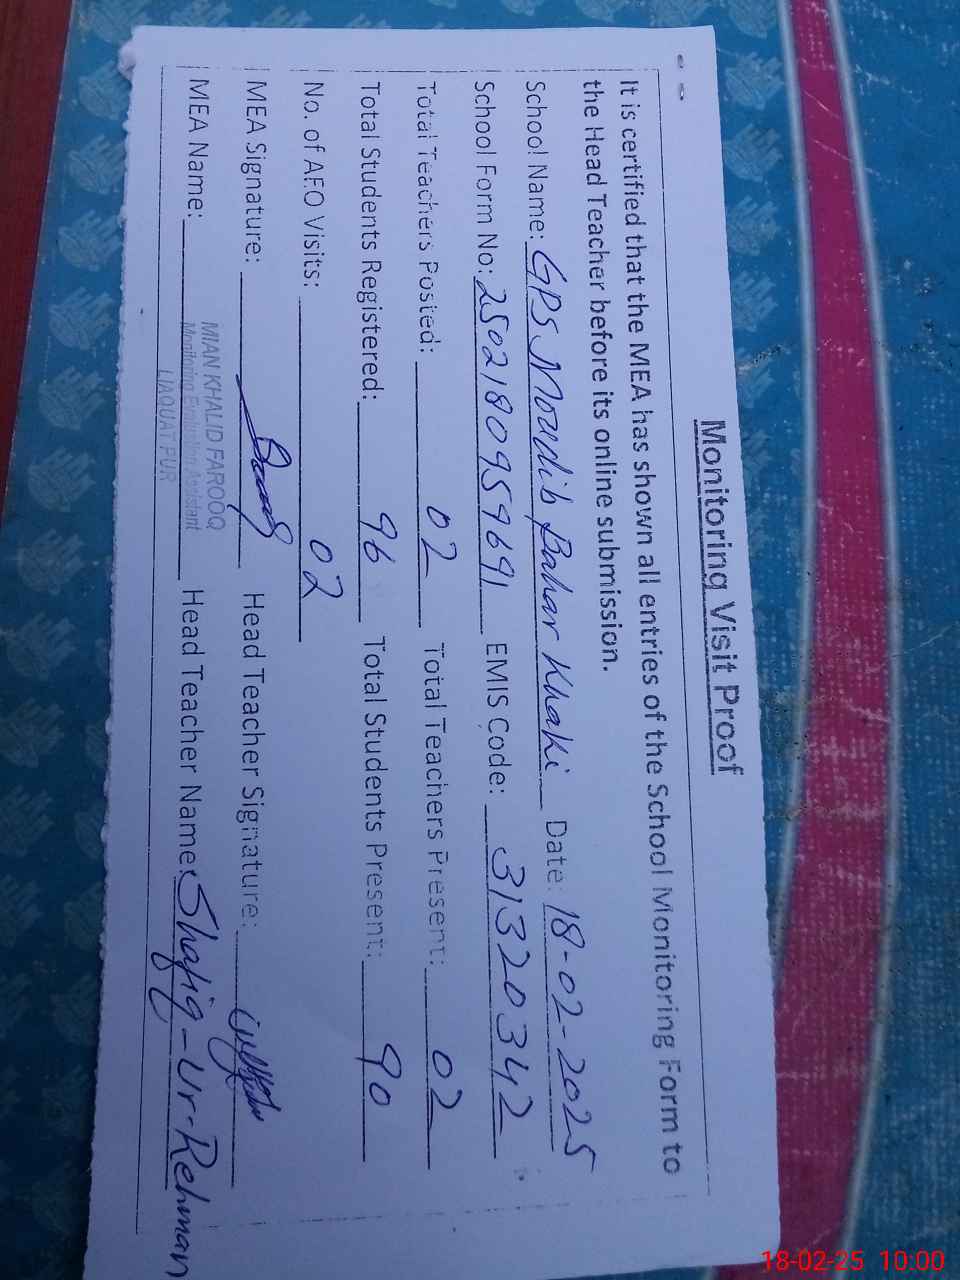 Monitoring Visit Proof
It is certified that the MEA has shown all entries of the School Monitoring Form to
the Head Teacher before its online submission.
School Name: GPS Moudib Bahar Khaki Date: 18-02-2025
School Form No: 2502180959691 EMIS Code: 31320342
Total Teachers Posted: 02 Total Teachers Present: 02
Total Students Registered: 96 Total Students Present: 90
No. of AEO Visits: 02
MEA Signature: Head Teacher Signature:
MIAN KHALID FAROOQ
MEA Name: Monitoring Evaluation Assistant Head Teacher Name: Shafiq-Ur-Rehman
LIAQUAT PUR
18-02-25 10:00